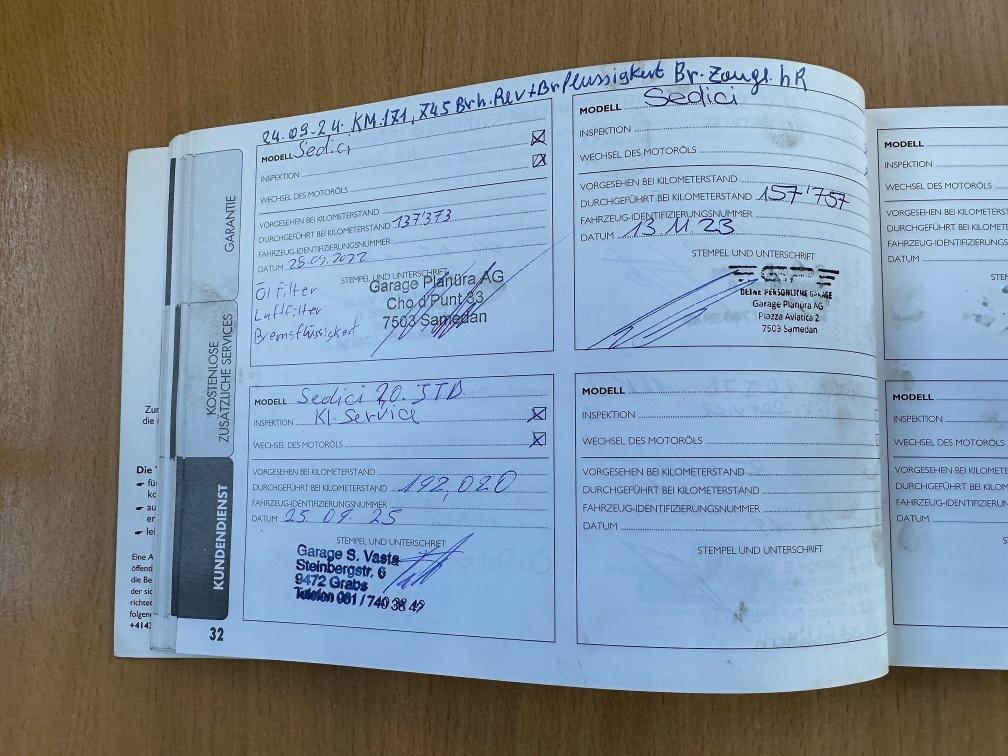 24.09.24. KM.171,745 Brh.Rev+BrFlussigkeit Br.Zange.hR
MODELL Sedici
INSPEKTION
WECHSEL DES MOTORÖLS
VORGESEHEN BEI KILOMETERSTAND
DURCHGEFÜHRT BEI KILOMETERSTAND 137'373
FAHRZEUG-IDENTIFIZIERUNGSNUMMER
DATUM 28.09.2022
STEMPEL UND UNTERSCHRIFT
Öl Filter
Luftfilter
Bremsflüssigkeit
Garage Planüra AG
Cho d'Punt 33
7503 Samedan
MODELL Sedici
INSPEKTION
WECHSEL DES MOTORÖLS
VORGESEHEN BEI KILOMETERSTAND
DURCHGEFÜHRT BEI KILOMETERSTAND 157'757
FAHRZEUG-IDENTIFIZIERUNGSNUMMER
DATUM 13.11.23
STEMPEL UND UNTERSCHRIFT
DEINE PERSÖNLICHE GARAGE
Garage Planüra AG
Piazza Aviatica 2
7503 Samedan
MODELL Sedici 20. JTD.
INSPEKTION Kl. Service
WECHSEL DES MOTORÖLS
VORGESEHEN BEI KILOMETERSTAND
DURCHGEFÜHRT BEI KILOMETERSTAND 192,020
FAHRZEUG-IDENTIFIZIERUNGSNUMMER
DATUM 25. 09. 25
STEMPEL UND UNTERSCHRIFT
Garage S. Vasta
Steinbergstr. 6
9472 Grabs
Telefon 081 / 740 38 49
MODELL
INSPEKTION
WECHSEL DES MOTORÖLS
VORGESEHEN BEI KILOMETERSTAND
DURCHGEFÜHRT BEI KILOMETERSTAND
FAHRZEUG-IDENTIFIZIERUNGSNUMMER
DATUM
STEMPEL UND UNTERSCHRIFT
GARANTIE
KOSTENLOSE
ZUSÄTZLICHE SERVICES
KUNDENDIENST
32
MODELL
INSPEKTION
WECHSEL DES MOTORÖLS
VORGESEHEN BEI KILOMETERS
DURCHGEFÜHRT BEI KILOMET
FAHRZEUG-IDENTIFIZIERUNGS
DATUM
MODELL
INSPEKTION
WECHSEL DES MOTORÖLS
VORGESEHEN BEI KILOMETER
DURCHGEFÜHRT BEI KILOMET
FAHRZEUG-IDENTIFIZIERUNGS
DATUM